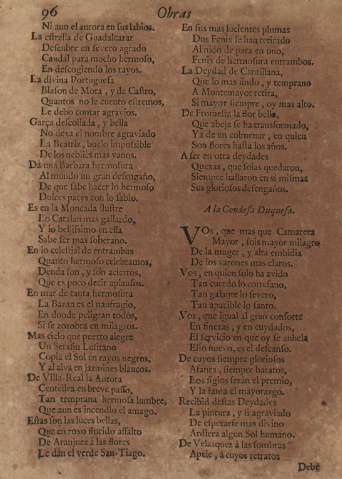 96 Obras
Ni aun el aurora en sus labios.
La estrella de Guadalcazar
Descubre en severo agrado
Caudal para mucho hermoso,
En descogiendo los rayos.
La divina Portuguesa
Blason de Mora, y de Castro,
Quantos no le cuento estremos,
Le debo contar agravios.
Garça descollada, y bella
No dexa el nombre agraviado
La Beatriz, buelo impossible
De los nebilies mas vanos.
Da una Barbara hermosura
Al mundo un gran desengaño,
De que sabe hacer lo hermoso
Dulces paces con lo sabio.
Es en la Moncada ilustre
Lo Catalan mas gallardo,
Y lo bellissimo en ella
Sabe ser mas soberano.
En lo celestial de entrambas
Quanto hermoso celebramos,
Deuda son, y son aciertos,
Que es poco decir aplausos.
En mar de tanta hermosura
La Bazan es el naufragio,
En donde peligran todos,
Si se zozobra en milagros.
Mas cielo que puerto alegre
Un Serafin Lusitano
Copia el Sol en rayos negros,
Y al alva en jazmines blancos.
De Villa-Real la Aurora
Contenta en breve passo,
Tan temprana hermosa lumbre,
Que aun es incendio el amago.
Estas son las luces bellas,
Que en roxo lucido assalto
De Aranjuez à las flores
Le dàn el verde San-Tiago.
En sus mas lucientes plumas
Dos Fenis se han retirado
Al nido de pura en uno,
Fenis de hermosura entrambos.
La Deydad de Cantillana,
Que lo mas lindo, y temprano
A Montemayor retira,
Si mayor siempre, oy mas alto.
De Fromesta la flor bella,
Que abeja se ha transformado,
Ya de un colmenar, en quien
Son flores hasta los años.
A ser en otra deydades
Quexas, que solas quedaron,
Siempre hallaron en sí mismas
Sus gloriosos desengaños.
A la Condesa Duquesa.
VOs, que mas que Camarera
Mayor, sois mayor milagro
De la muger, y alta embidia
De los varones mas claros.
Vos, en quien solo ha avido
Tan cuerdo lo cortesano,
Tan galante lo severo,
Tan apacible lo santo.
Vos, que igual al gran consorte
En finezas, y en cuydados,
El servicio en que oy se anhela
Esso nuevo, es el descanso.
De cuyos siempre gloriosos
Afanes, siempre baratos,
Los siglos serán el premio,
Y la fama el mayorazgo.
Recibid destas Deydades
La pintura, y si agraviado
De esperarse mas divino
Ardiera algun Sol humano.
De Velazquez à las sombras
Apele, à cuyos retratos
Debe